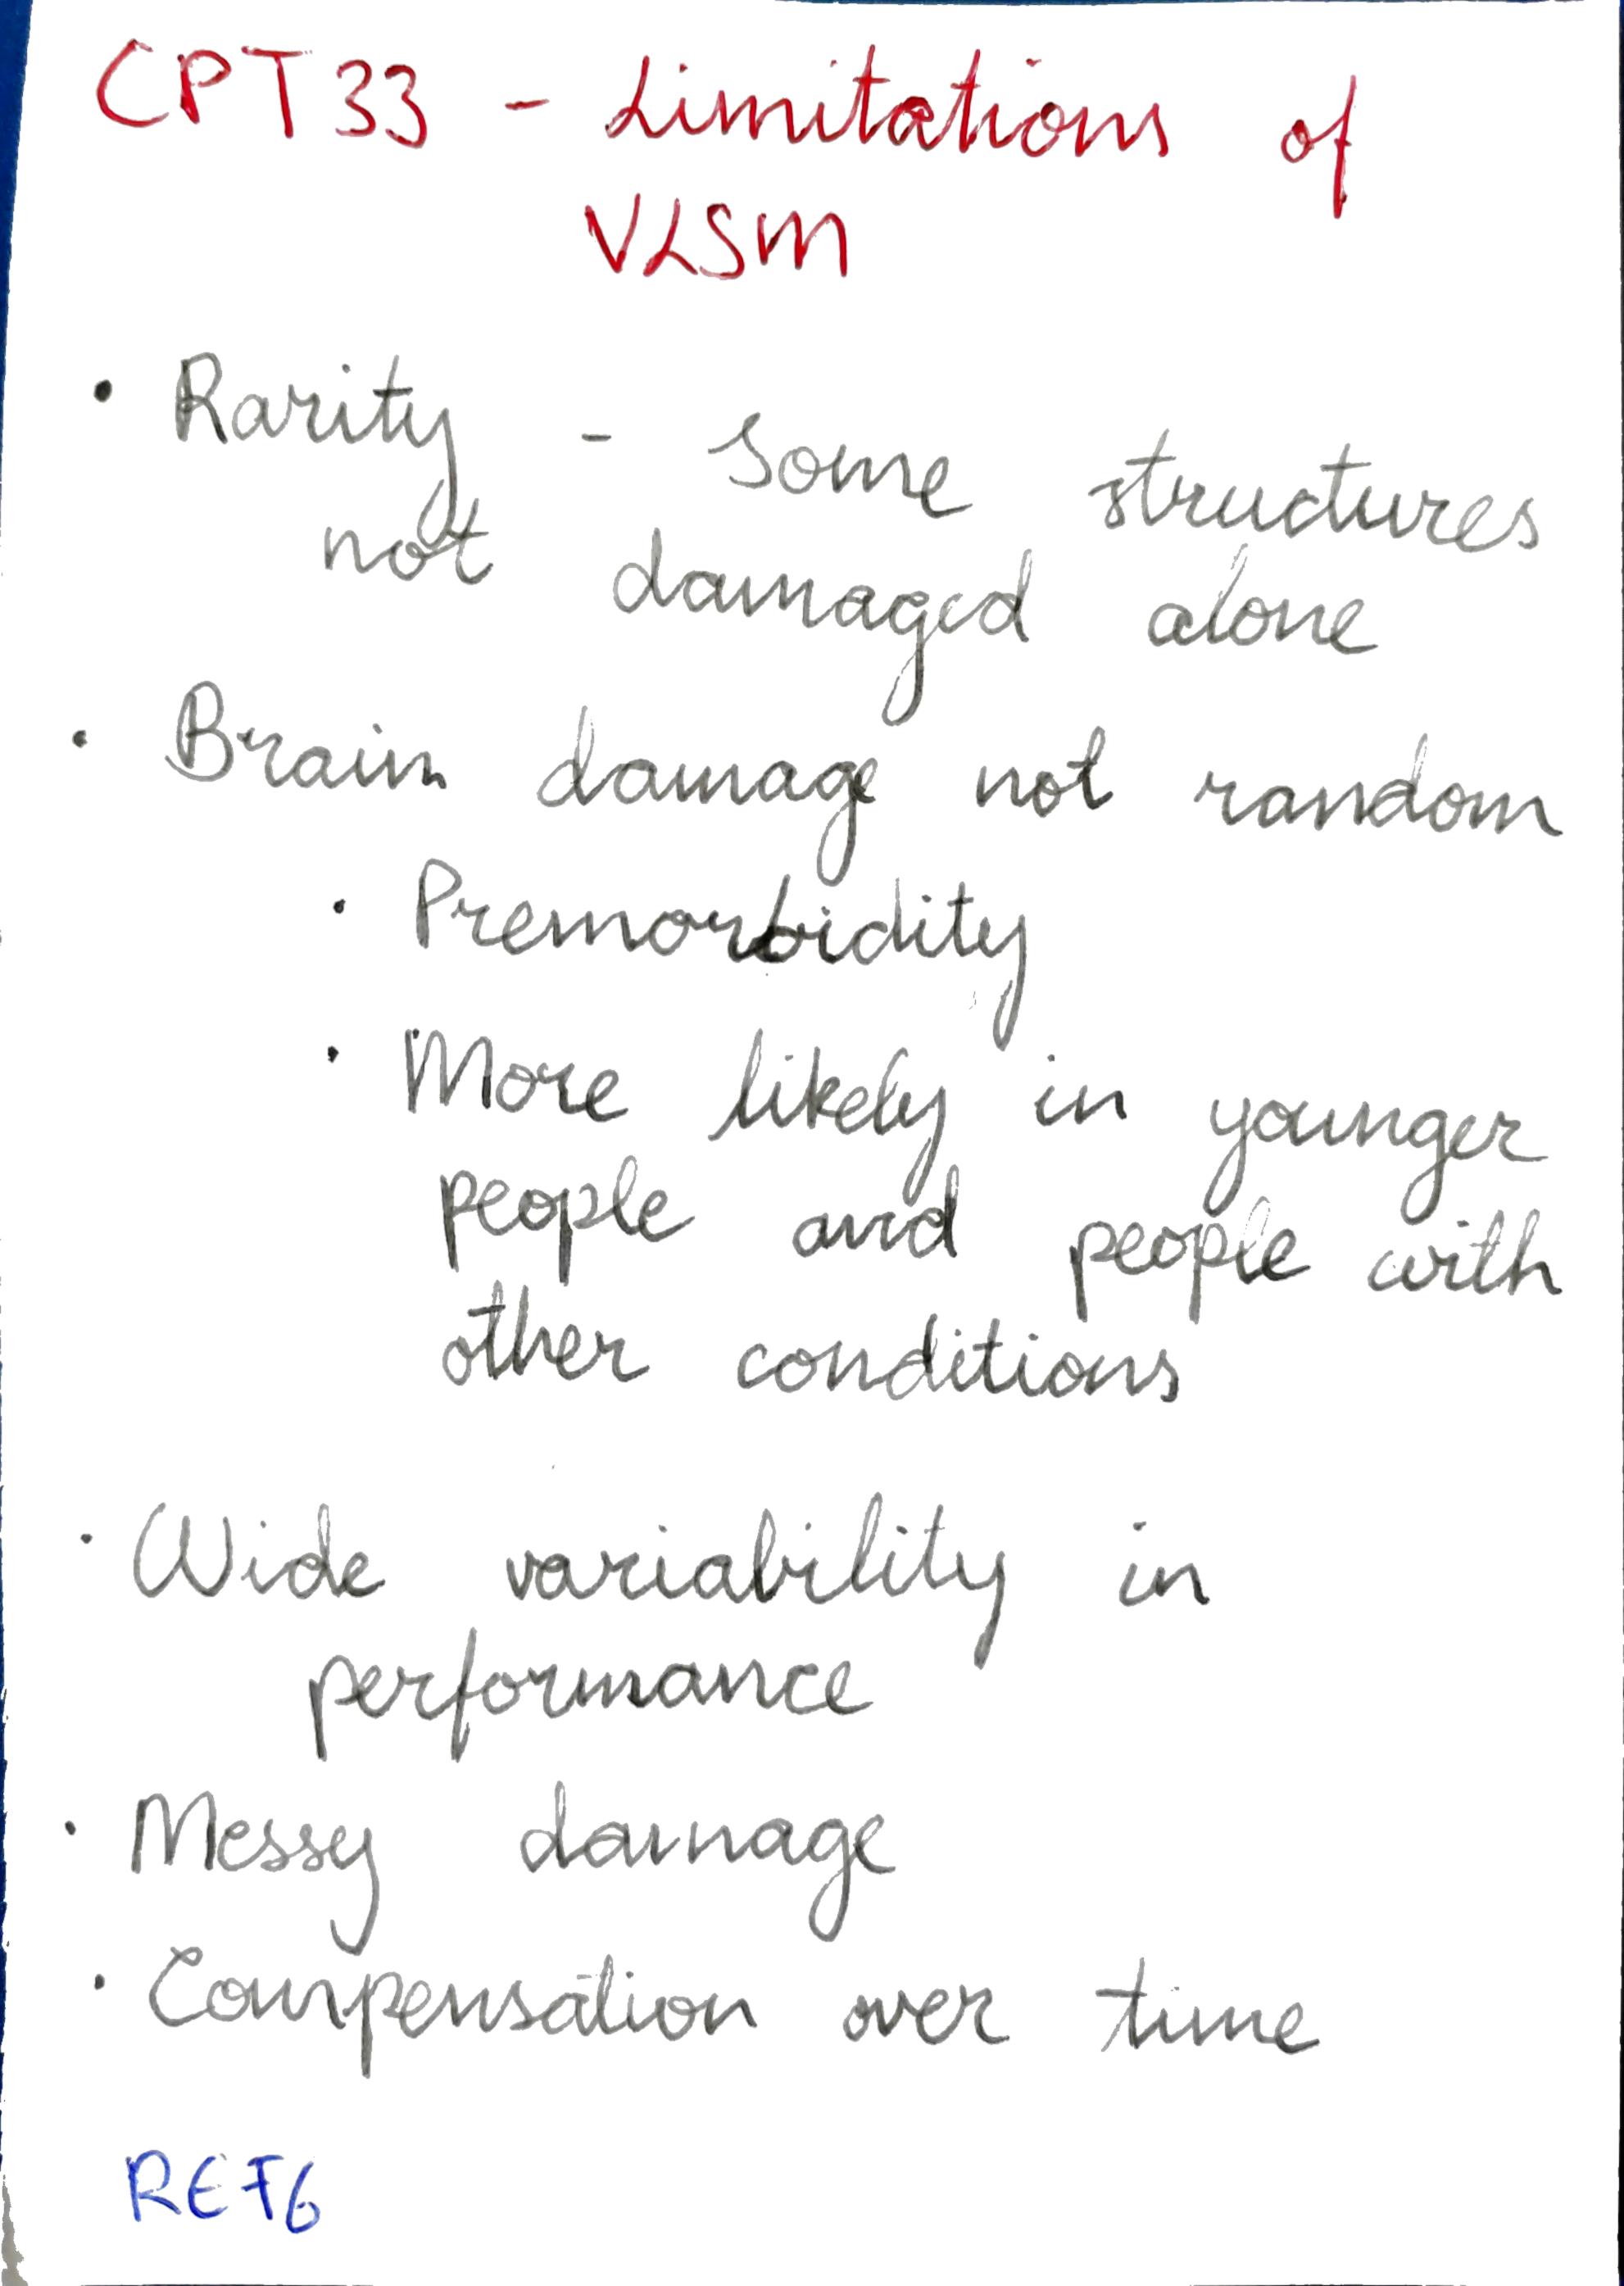 CPT33 - Limitations of
VLSM
• Rarity - some structures
not damaged alone
• Brain damage not random
• Premorbidity
• More likely in younger
people and people with
other conditions
• Wide variability in
performance
• Messy damage
• Compensation over time
REF6